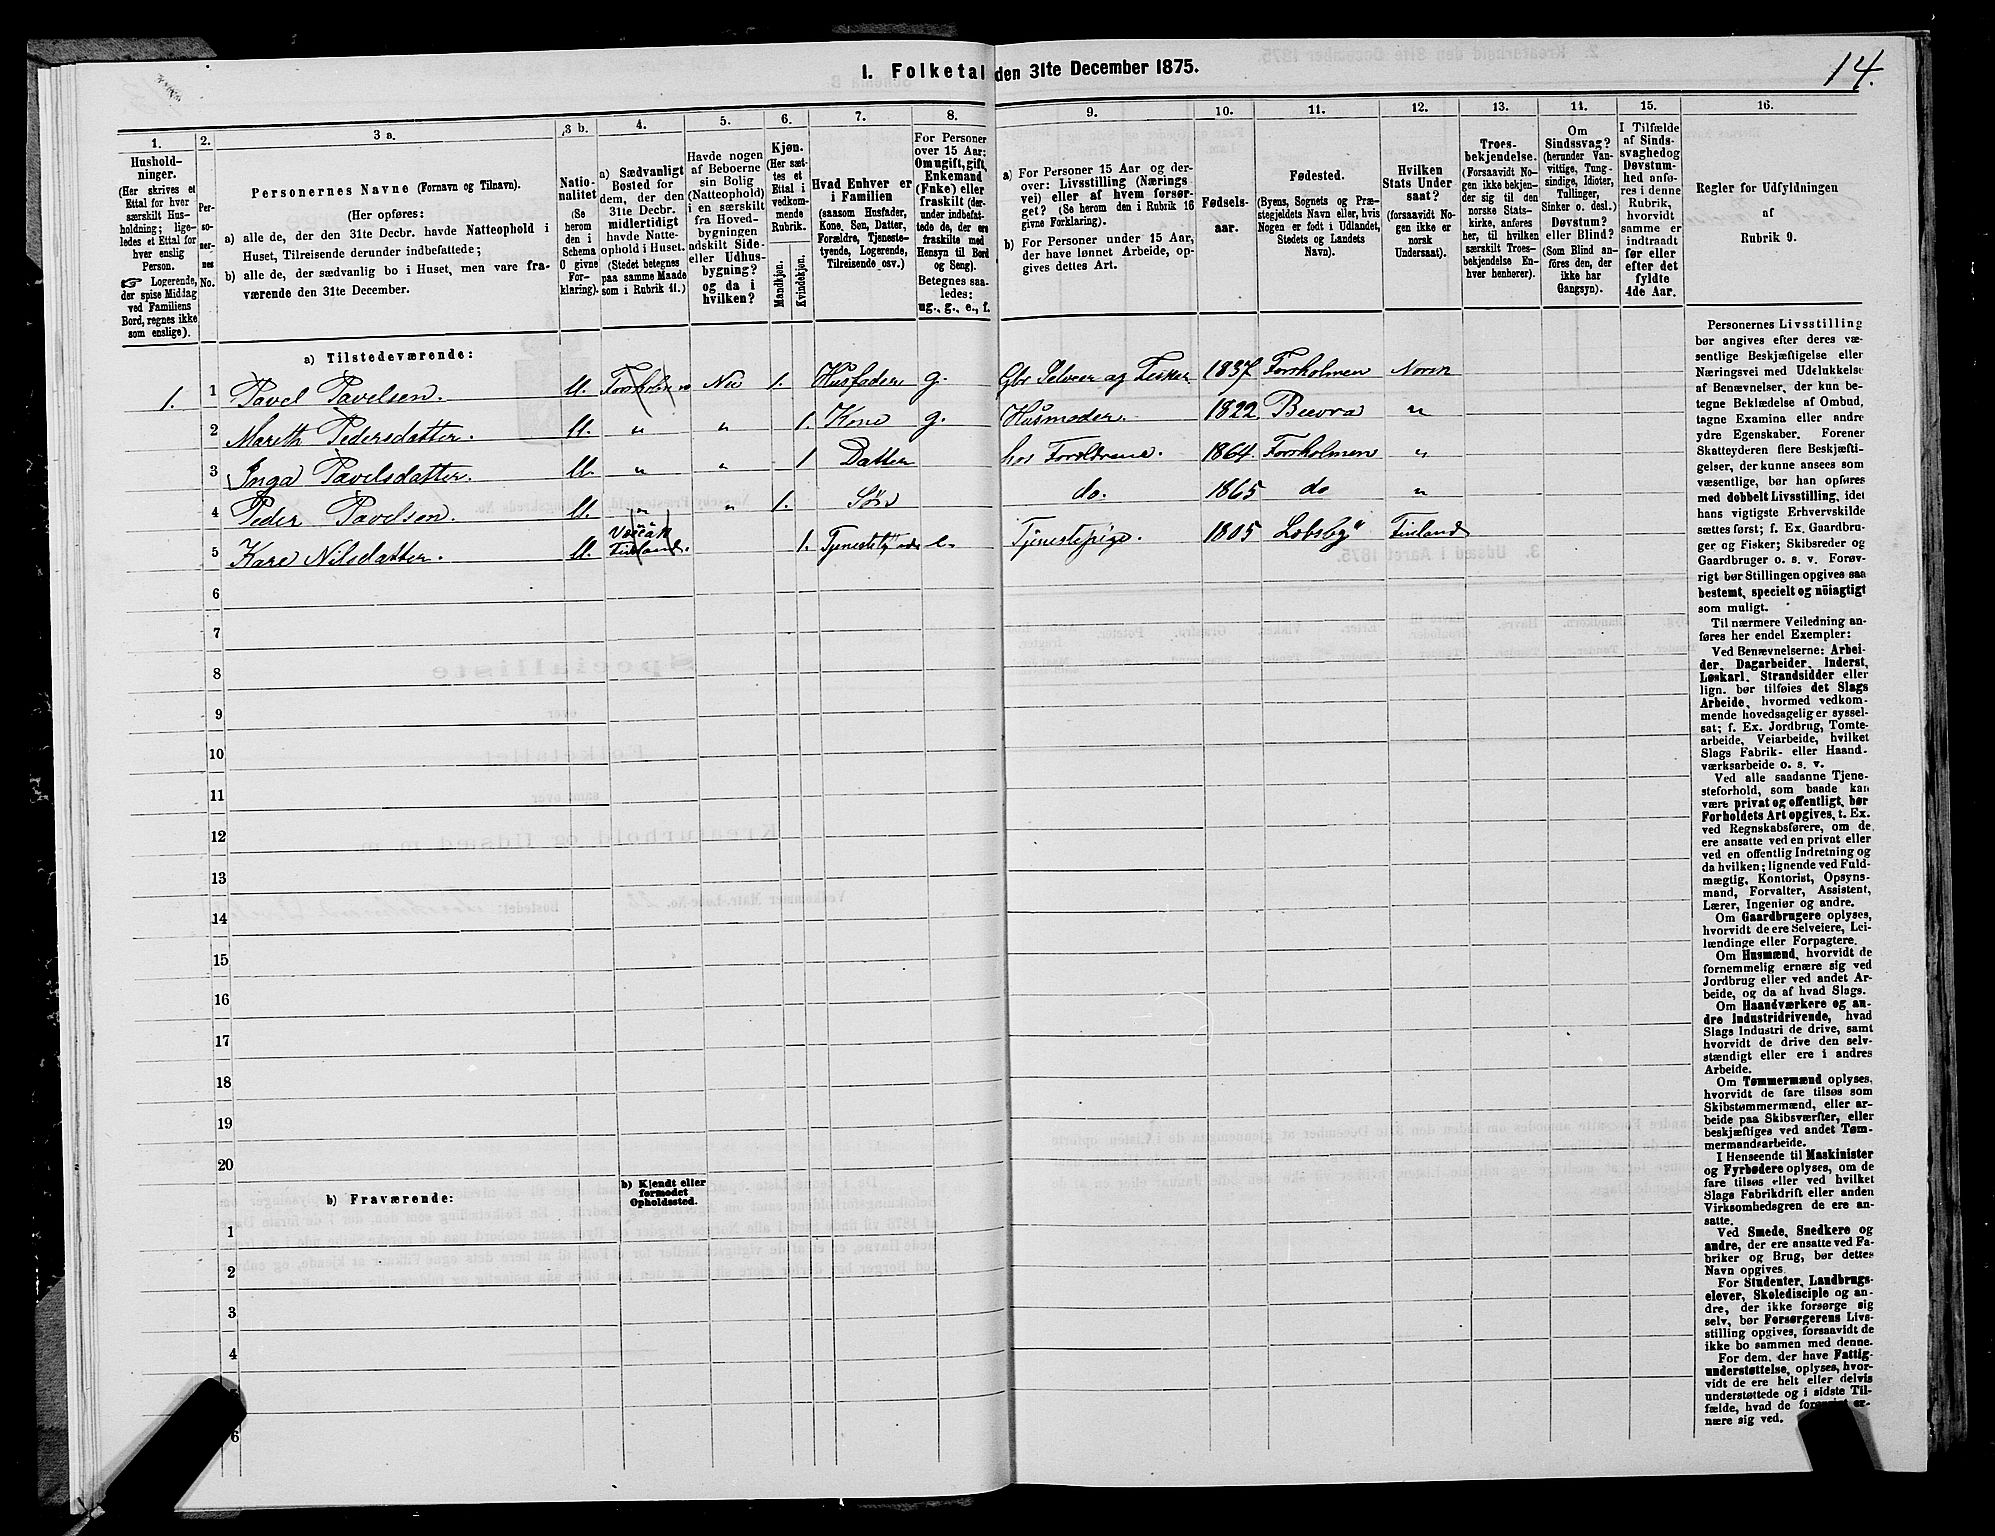 I. Folketal den 31te December 1875.
14.
1.
Hushold-
ninger.
(Her skrives et
Ettal for hver
særskilt Hus-
holdning; lige-
ledes et Ettal for
hver enslig
Person.
☞ Logerende,
der spise Middag
ved Familiens
Bord, regnes ikke
som enslige).
2.
Per-
so-
ner-
nes
No.
3 a.
Personernes Navne (Fornavn og Tilnavn).
(Her opføres:
a) alle de, der den 31te Decbr. havde Natteophold i
Huset, Tilreisende derunder indbefattede;
b) alle de, der sædvanlig bo i Huset, men vare fra-
værende den 31te December.
3 b.
Natio-
nalitet
(Se
herom
den i
Schema
O givne
For-
klaring).
4.
a) Sædvanligt
Bosted for
dem, der den
31te Decbr.
midlertidigt
havde Natte-
ophold i Huset.
(Stedet betegnes
paa samme Maade
som i Rubrik 11.)
5.
Havde nogen
af Beboerne
sin Bolig
(Natteophold)
i en særskilt
fra Hoved-
bygningen
adskilt Side-
eller Udhus-
bygning?
og da i
hvilken?
6.
Kjøn.
(Her sæt-
tes et
Ettal i
vedkom-
mende
Rubrik.
Mandkjøn.
Kvindekjøn.
7.
Hvad Enhver er
i Familien
(saasom Husfader,
Kone, Søn, Datter,
Forældre, Tjeneste-
tyende, Logerende,
Tilreisende osv.)
8.
For Personer
over 15 Aar:
Om ugift, gift,
Enkemand
(Enke) eller
fraskilt (der-
under indbefat-
tede de, der ere
fraskilte med
Hensyn til Bord
og Seng).
Betegnes saa-
ledes:
ug., g., e., f.
9.
a) For Personer 15 Aar og der-
over: Livsstilling (Nærings
vei) eller af hvem forsør-
get? (Se herom de i Rubrik 16
givne Forklaring).
b) For Personer under 15 Aar,
der have lønnet Arbeide, op-
gives dettes Art.
10.
Fødsels-
aar.
11.
Fødested.
(Byens, Sognets og Præ-
stegjeldets Navn eller, hvis
Nogen er født i Udlandet,
Stedets og Landets
Navn).
12.
Hvilken
Stats Under
saat?
(forsaavidt No-
gen ikke er
norsk
Undersaat).
13.
Troes-
bekjendelse.
(Forsaavidt No-
gen ikke bekjen-
der sig til den
norske Stats-
kirke, anføres
her, til hvilken
særskilt Troes-
bekjendelse En-
hver henhører).
14.
Om
Sindssvag?
(herunder Van-
vittige, Tung-
sindige, Idioter,
Tullinger,
Sinker o. desl.)
Døvstum?
eller Blind?
(Som Blind an-
føres den, der
ikke har
Gangsyn).
15.
I Tilfælde
af Sinds-
svaghed og
Døvstum-
hed anfø-
res i denne
Rubrik,
hvorvidt
samme er
indtraadt
før eller
efter det
fyldte
4de Aar.
16.
Regler for Udfyldningen
af
Rubrik 9.
a) Tilstedeværende:
1. 1 Pavel Pavelsen. Nei 1. Husfader g. 1837 Forsholmen Norsk
2 Mareth Pedersdatter. „ „ 1. Kone g. Husmoder. 1822 „
3 Inga Pavelsdatter. „ „ 1 Datter hos Foreldrene. 1864 Forsholmen „
4 Peder Pavelsen. „ „ 1. Søn do. 1865 do „
5 Kare Nilsdatter. Finland. 1. e. Tjenestepige. 1805 Finland
6
7
8
9
10
11
12
13
14
15
16
17
18
19
20
b) Fraværende:
b) Kjendt eller
formodet
Opholdssted.
1
2
3
4
6
Personernes Livsstilling
bør angives efter deres væ-
sentlige Beskjæftigelse eller
Næringsvei med Udelukkelse
af Benævnelser, der kun be-
tegne Beklædelse af Ombud,
tagne Examina eller andre
ydre Egenskaber. Forener
Skatteyderen flere Beskjæfti-
gelser, der kunne ansees som
væsentlige, bør han opføres
med dobbelt Livsstilling, idet
hans vigtigste Erhvervskilde
sættes først; f. Ex. Gaardbru-
ger og Fisker; Skibsreder og
Gaardbruger o. s. v. Forøv-
rigt bør Stillingen opgives saa
bestemt, specielt og nöiagtigt
som muligt.
Til nærmere Veiledning an-
føres her endel Exempler:
Ved Benævnelserne: Arbei-
der, Dagarbeider, Inderst,
Løskarl, Strandsidder eller
lign. bør tilføies det Slags
Arbeide, hvormed vedkom-
mende hovedsagelig er syssel-
sat; f. Ex. Jordbrug, Tomte-
arbeide, Veiarbeide, hvilket
Slags Fabrik- eller Haand-
værksarbeide o. s. v.
Ved alle saadanne Tjene-
steforhold, som baade kan
være privat og offentligt, bør
Forholdets Art opgives, t. Ex.
ved Regnskabsførere, om de
ere ansatte ved en privat eller
ved en offentlig Indretning og
da hvilken; lignende ved Fuld-
mægtig, Kontorist, Opsyns-
mand, Forvalter, Assistent,
Lærer, Ingeniør og andre.
Om Gaardbrugere oplyses,
hvorvidt de ere Selveiere, Lei-
lændinge eller Forpagtere.
Om Husmænd, hvorvidt de
fornemmelig ernære sig ved
Jordbrug eller ved andet Ar-
beide, og da af hvad Slags.
Om Haandværkere og an-
dre Industridrivende, hvad
Slags Industri de drive, samt
hvorvidt de drive den selv-
stændigt eller ere i andres
Arbeide.
Om Tømmermænd oplyses,
hvorvidt de fare tilsøs som
Skibstømmermænd, eller ar-
beide paa Skibsværfter, eller
beskjæftiges ved andet Tøm-
mermandsarbeide.
I Henseende til Maskinister
og Fyrbødere oplyses, om de
fare tilsøs eller ved hvilket
Slags Fabrikdrift eller anden
Virksomhedsgren de ere an-
satte.
Ved Smede, Snedkere og
andre, der ere ansatte ved Fa-
briker og Brug, bør dettes
Navn opgives.
For Studenter, Landbrugs-
elever, Skoledisciple og an-
dre, der ikke forsørge sig
selv, bør Forsørgerens Livs-
stilling opgives, forsaavidt de
ikke bo sammen med denne.
For dem, der have Fattig-
understøttelse, oplyses, hvor-
vidt de ere helt eller delvis
understøttede og i sidste Til-
fælde, hvad de forøvrigt er-
nære sig ved.